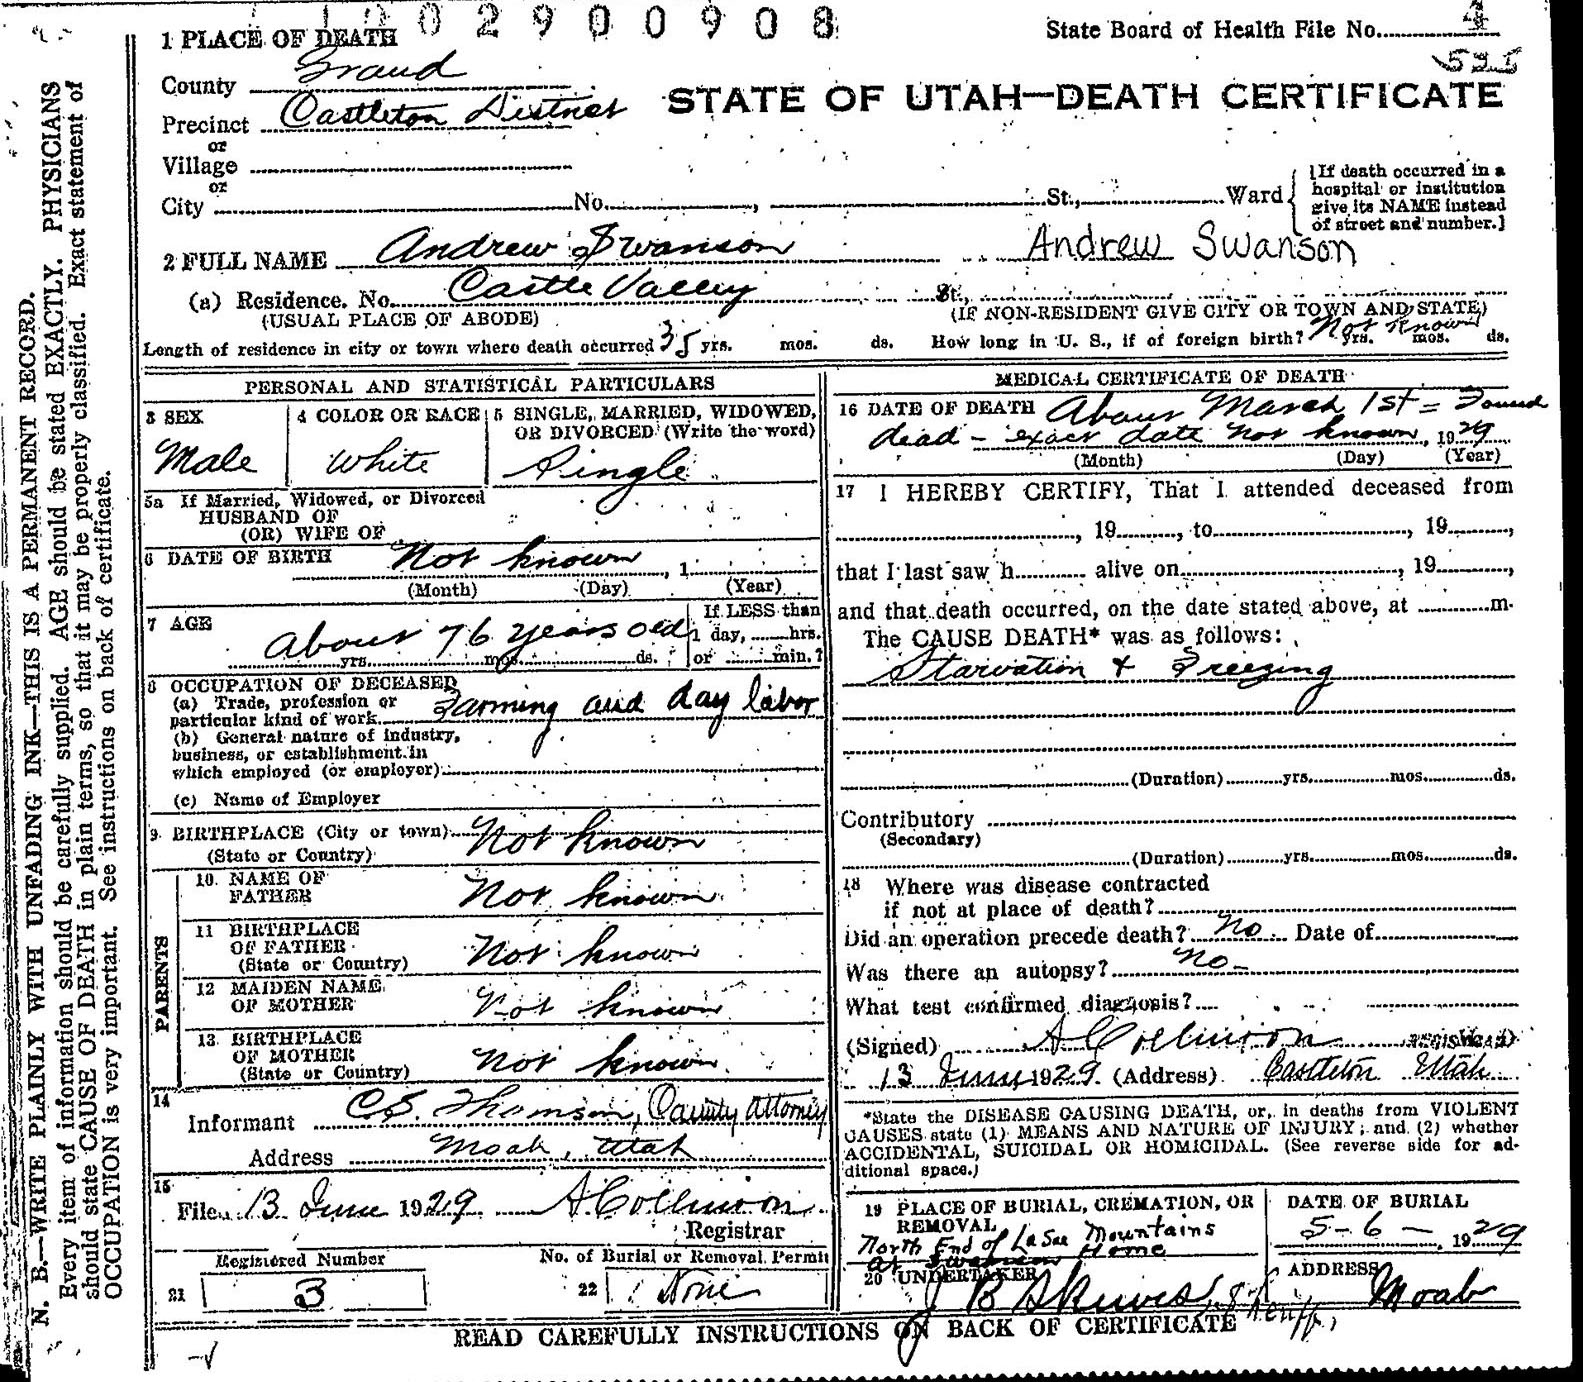 002900908
State Board of Health File No. 4
535
1 PLACE OF DEATH
County Grand
STATE OF UTAH—DEATH CERTIFICATE
Precinct Castleton District
or
Village
or
City No. , St., Ward
[If death occurred in a
hospital or institution
give its NAME instead
of street and number.]
2 FULL NAME Andrew Swanson Andrew Swanson
(a) Residence. No. Castle Valley St.,
(USUAL PLACE OF ABODE) (IF NON-RESIDENT GIVE CITY OR TOWN AND STATE)
Length of residence in city or town where death occurred 35 yrs. mos. ds. How long in U. S., if of foreign birth? Not Known yrs. mos. ds.
PERSONAL AND STATISTICAL PARTICULARS
3 SEX
Male
4 COLOR OR RACE
White
5 SINGLE, MARRIED, WIDOWED,
OR DIVORCED (Write the word)
Single
5a If Married, Widowed, or Divorced
HUSBAND OF
(OR) WIFE OF
6 DATE OF BIRTH Not known , 1
(Month) (Day) (Year)
7 AGE
About 76 years old
yrs. mos. ds.
If LESS than
1 day, hrs.
or min.?
8 OCCUPATION OF DECEASED
(a) Trade, profession or
particular kind of work Farming and day labor
(b) General nature of industry,
business, or establishment in
which employed (or employer)
(c) Name of Employer
9 BIRTHPLACE (City or town) Not known
(State or Country)
PARENTS
10 NAME OF
FATHER Not known
11 BIRTHPLACE
OF FATHER Not known
(State or Country)
12 MAIDEN NAME
OF MOTHER Not known
13 BIRTHPLACE
OF MOTHER Not known
(State or Country)
14
Informant C.S. Thomson, County Attorney
Address Moab, Utah
15
Filed 13 June 1929 A Collinson
Registrar
Registered Number
21 3
No. of Burial or Removal Permit
22 None
MEDICAL CERTIFICATE OF DEATH
16 DATE OF DEATH About March 1st = Found
dead - exact date not known, 1929
(Month) (Day) (Year)
17 I HEREBY CERTIFY, That I attended deceased from
, 19 , to , 19 ,
that I last saw h alive on , 19 ,
and that death occurred, on the date stated above, at m.
The CAUSE DEATH* was as follows:
Starvation & Freezing
(Duration) yrs. mos. ds.
Contributory
(Secondary)
(Duration) yrs. mos. ds.
18 Where was disease contracted
if not at place of death?
Did an operation precede death? No Date of
Was there an autopsy? No -
What test confirmed diagnosis?
(Signed) A Collinson REGISTRAR
13 June 1929 (Address) Castleton Utah
*State the DISEASE CAUSING DEATH, or, in deaths from VIOLENT
CAUSES state (1) MEANS AND NATURE OF INJURY; and (2) whether
ACCIDENTAL, SUICIDAL OR HOMICIDAL. (See reverse side for ad-
ditional space.)
19 PLACE OF BURIAL, CREMATION, OR
REMOVAL
North End of La Sal Mountains
at Swanson Home
DATE OF BURIAL
5-6-, 1929
20 UNDERTAKER
J B Skewes, Sheriff,
ADDRESS
Moab
READ CAREFULLY INSTRUCTIONS ON BACK OF CERTIFICATE
N. B.—WRITE PLAINLY WITH UNFADING INK—THIS IS A PERMANENT RECORD.
Every item of information should be carefully supplied. AGE should be stated EXACTLY. PHYSICIANS
should state CAUSE OF DEATH in plain terms, so that it may be properly classified. Exact statement of
OCCUPATION is very important. See instructions on back of certificate.